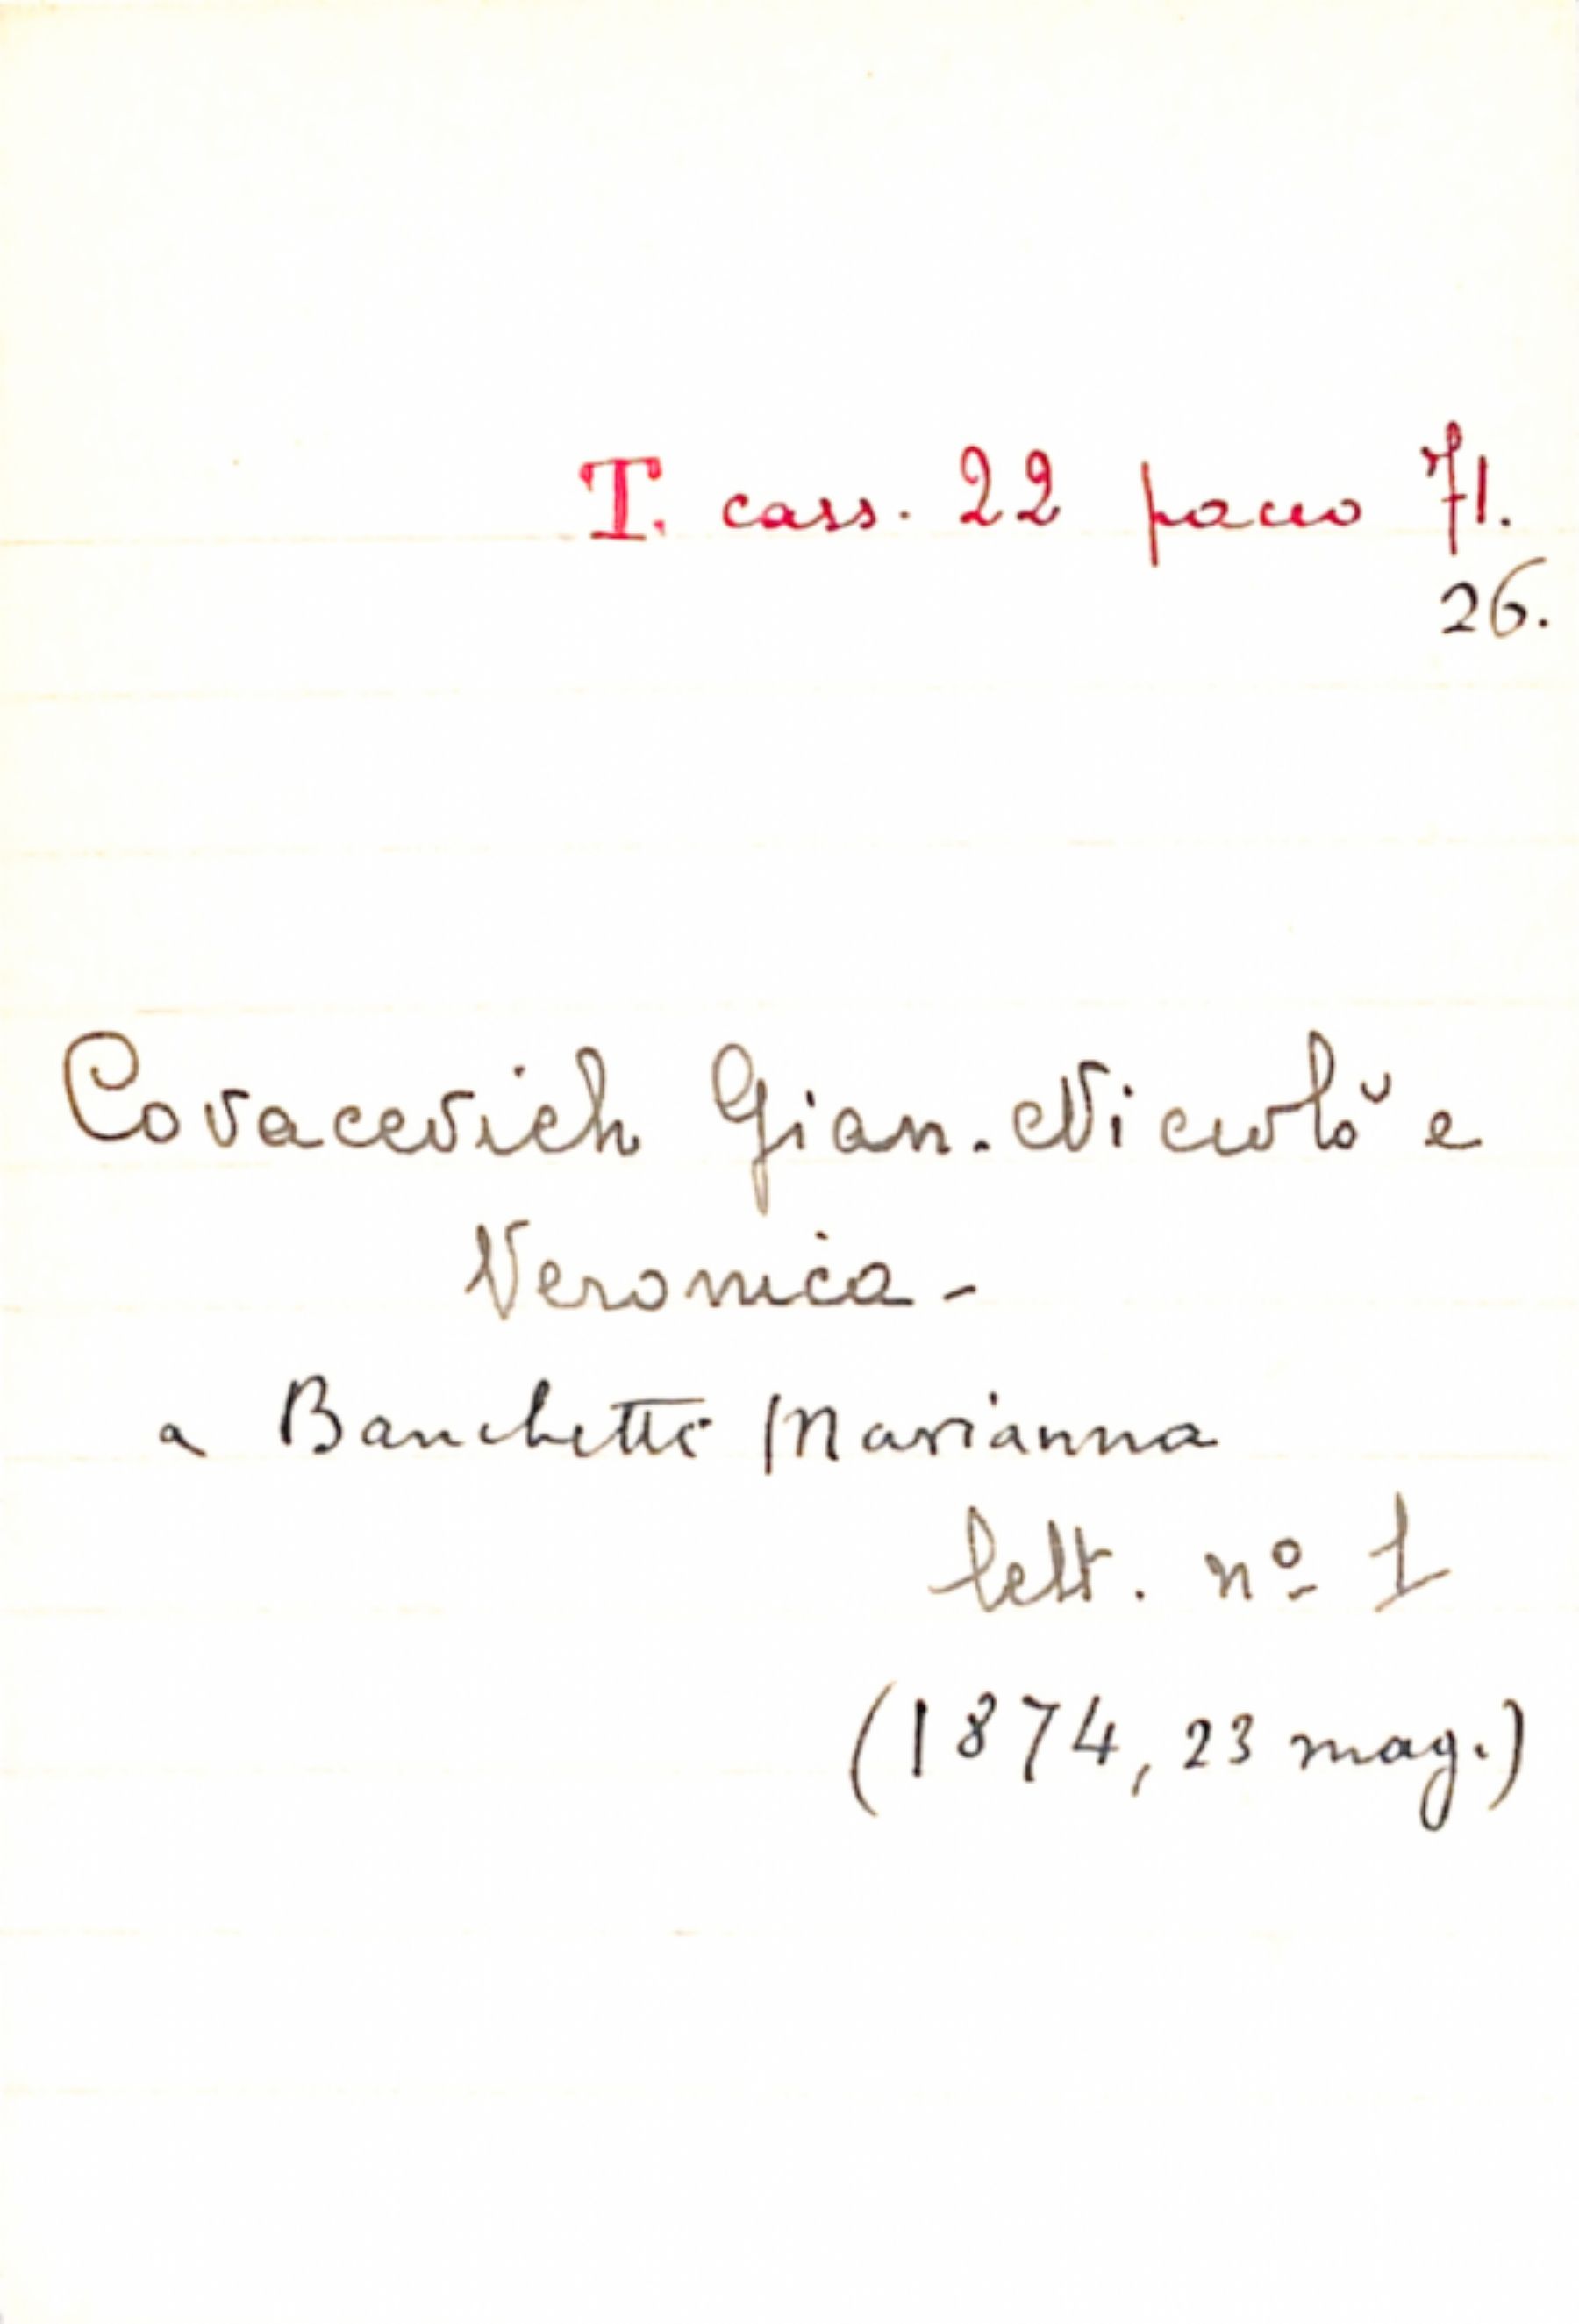 T. cass. 22 pacco 71.
26.
Covacevich Gian. Niccolò e
Veronica -
a Banchetti Marianna
lett. nº 1
(1874, 23 mag.)